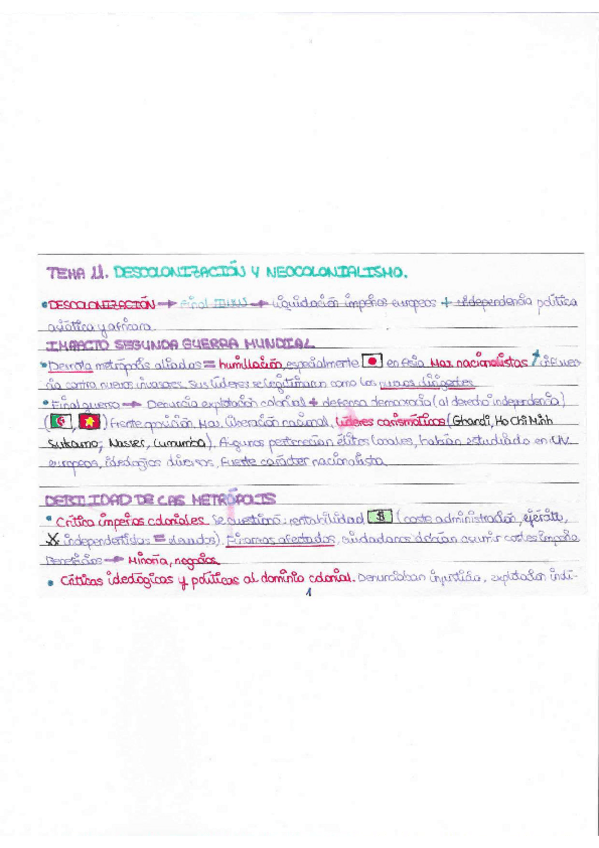 TEMA 11. DESCOLONIZACIÓN Y NEOCOLONIALISMO.
• DESCOLONIZACIÓN → Final IIGM → Liquidación imperios europeos + independencia política
asiática y africana.
IMPACTO SEGUNDA GUERRA MUNDIAL
• Derrota metrópolis aliadas = humillación, especialmente en Asia. Mov. nacionalistas ↑ influen-
cia contra nuevos invasores. Sus líderes se legitimaron como los nuevos dirigentes
• Final guerra → Denuncia explotación colonial + defensa democracia (al derecho independencia)
( , ) Frente oposición Mov. liberación nacional. Líderes carismáticos (Ghandi, Ho Chi Minh
Sukarno, Nasser, Lumumba). Algunos pertenecían élites locales, habían estudiado en UV
europeas, ideologías diversas, fuerte carácter nacionalista.
DEBILIDAD DE LAS METRÓPOLIS
• Crítica imperios coloniales. Se cuestionó: rentabilidad $ (coste administración, ejército,
X independentistas = elevados). Finanzas afectadas, ciudadanos debían asumir costes imperio
Beneficios → Minoría, negocios.
• Críticas ideológicas y políticas al dominio colonial. Denunciaban injusticia, explotación indí-
1